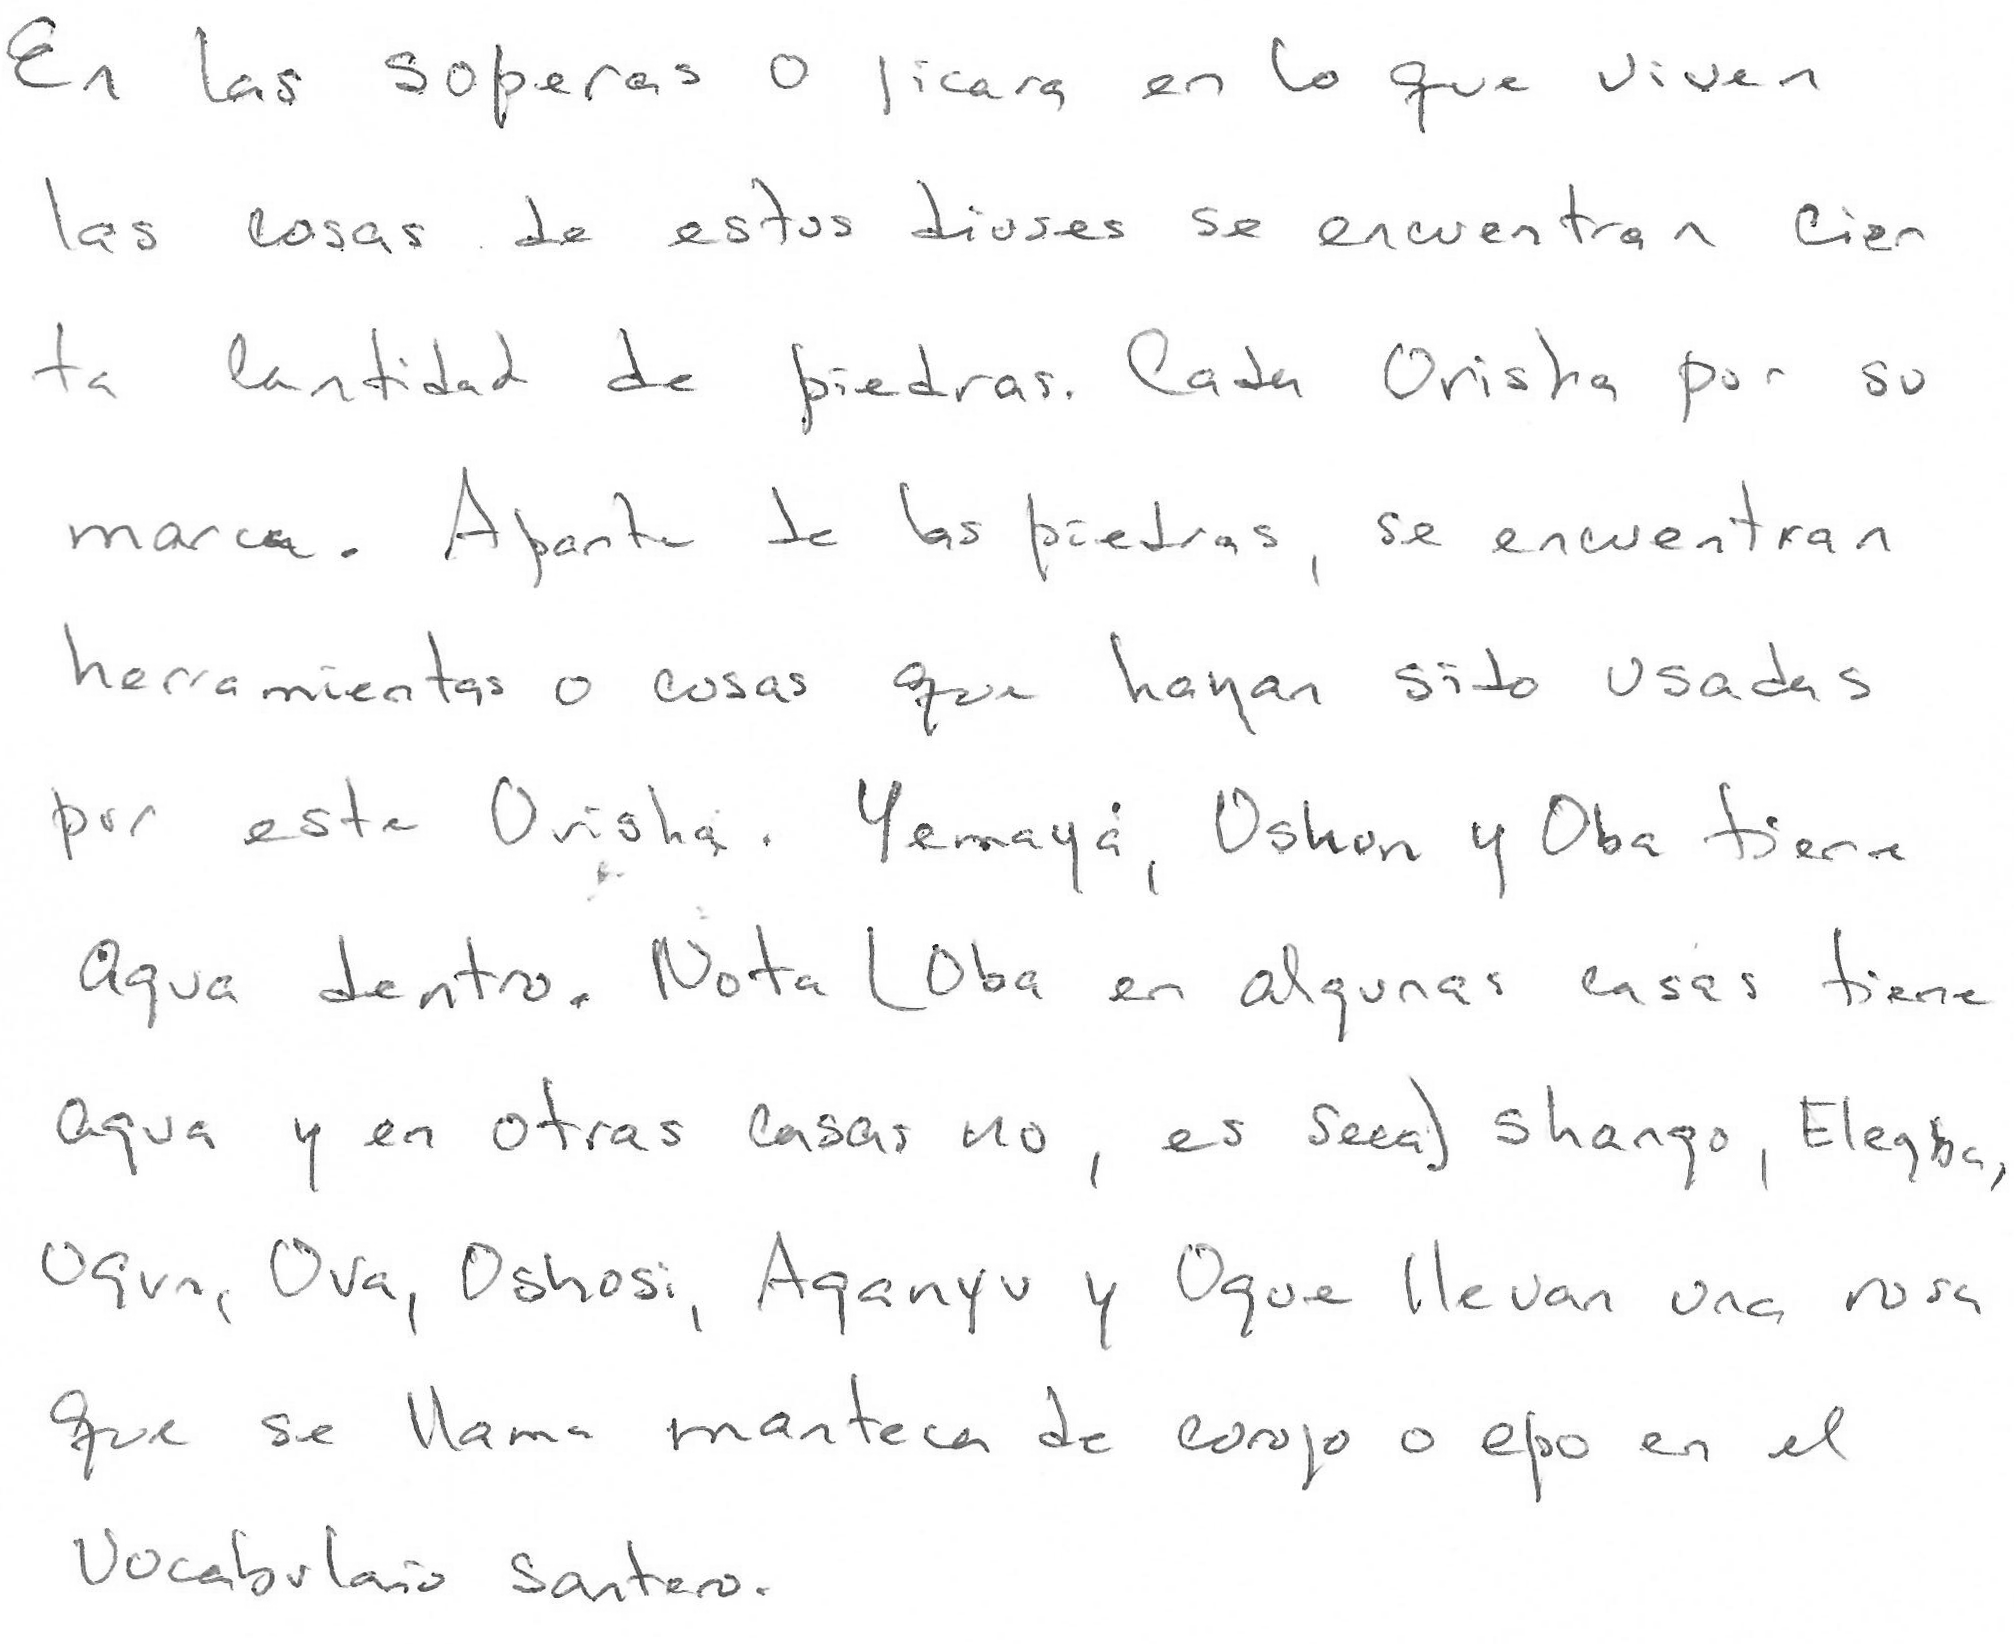 En las soperas o jicara en lo que viven
las cosas de estos dioses se encuentran cier
ta cantidad de piedras. Cada Orisha por su
marca. Aparte de las piedras, se encuentran
herramientas o cosas que hayan sido usadas
por este Orisha. Yemayá, Oshun y Oba tiene
agua dentro. Nota (Oba en algunas casas tiene
agua y en otras casas no, es seca) shango, Elegba,
Ogun, Oya, Oshosi, Aganyu y Oque llevan una rosa
que se llama manteca de corojo o epo en el
Vocabulaio santero.